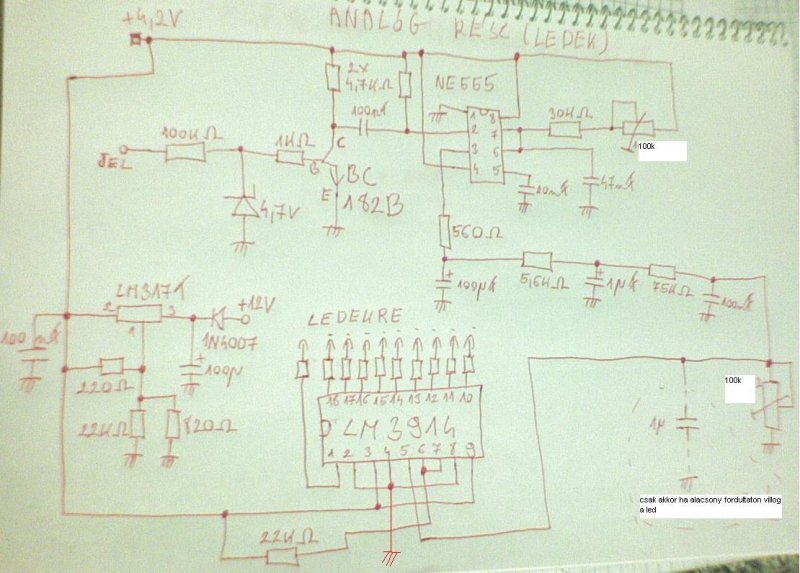 ANALÓG RESZ (LEDEK)
+4,2V
2x
4,7KΩ
NE555
100nF
30KΩ
100k
1 8
2 7
3 6
4 5
100KΩ
JEL
1KΩ
C
B
E
BC
182B
4,7V
20nF
47nF
560Ω
100µF
5,6KΩ
1µF
75KΩ
100nF
LM317T
2 3
1
+12V
1N4007
100nF
100µ
220Ω
22KΩ
820Ω
LEDEKRE
18 17 16 15 14 13 12 11 10
LM3914
1 2 3 4 5 6 7 8 9
22KΩ
100k
1µ
csak akkor ha alacsony fordultaton villog
a led